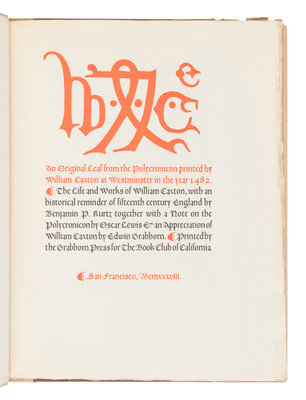 An Original Leaf from the Polycronicon printed by
William Caxton at Westminster in the year 1482.
¶ The Life and Works of William Caxton, with an
historical reminder of fifteenth century England by
Benjamin P. Kurtz together with a Note on the
Polycronicon by Oscar Lewis & an Appreciation of
William Caxton by Edwin Grabhorn. ¶ Printed by
the Grabhorn Press for The Book Club of California.
¶ San Francisco, Mcmxxxviii.